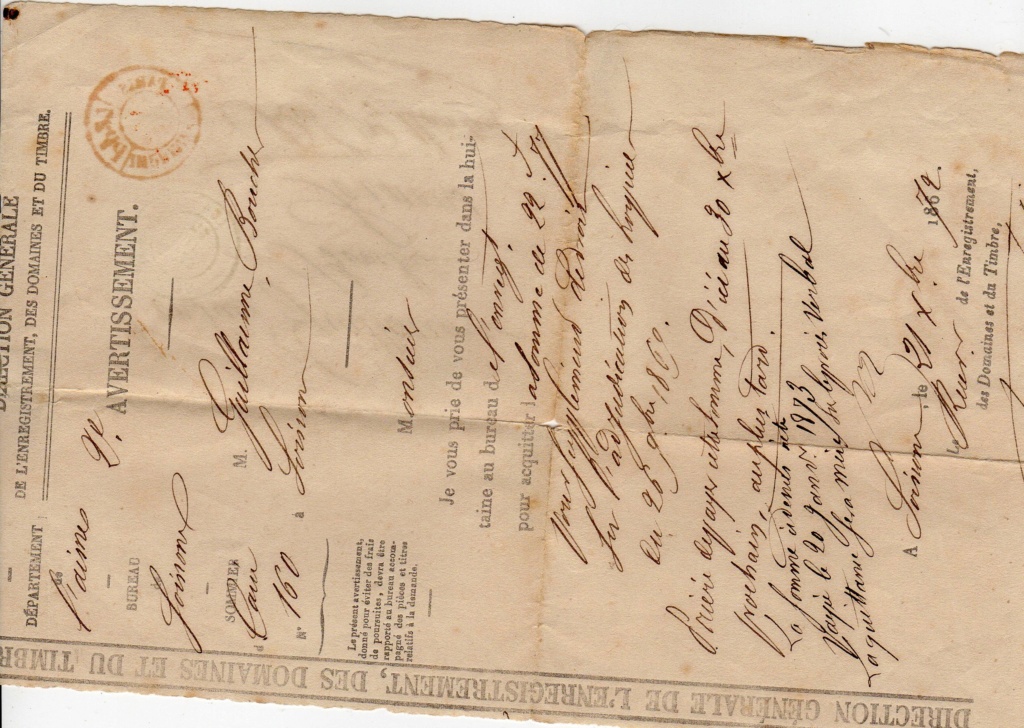 DIRECTION GÉNÉRALE
DE L'ENREGISTREMENT, DES DOMAINES ET DU TIMBRE.
DÉPARTEMENT
de
l'aisne
BUREAU
Soissons
SOMMIER
d
N° 160
Le présent avertissement,
donné pour éviter des frais
de poursuites, devra être
rapporté au bureau accom-
pagné des pièces et titres
relatifs à la demande.
AVERTISSEMENT.
M. Guillaume
à Soissons
Monsieur
Je vous prie de vous présenter dans la hui-
taine au bureau de l'enregt
pour acquitter la somme de 22 f
pour supplément de droit
sur l'adjudication
du 26 9bre 1869.
Prière de payer cette somme, D'ici au 30 xbre
prochain, au plus tard.
La somme ci dessus
Payé le 20 janvr 1873
La quittance sera mise verbal
A Soissons, le 21 xbre 187
Le Receveur de l'Enregistrement,
des Domaines et du Timbre,
DIRECTION GÉNÉRALE DE L'ENREGISTREMENT, DES DOMAINES ET DU TIMBR